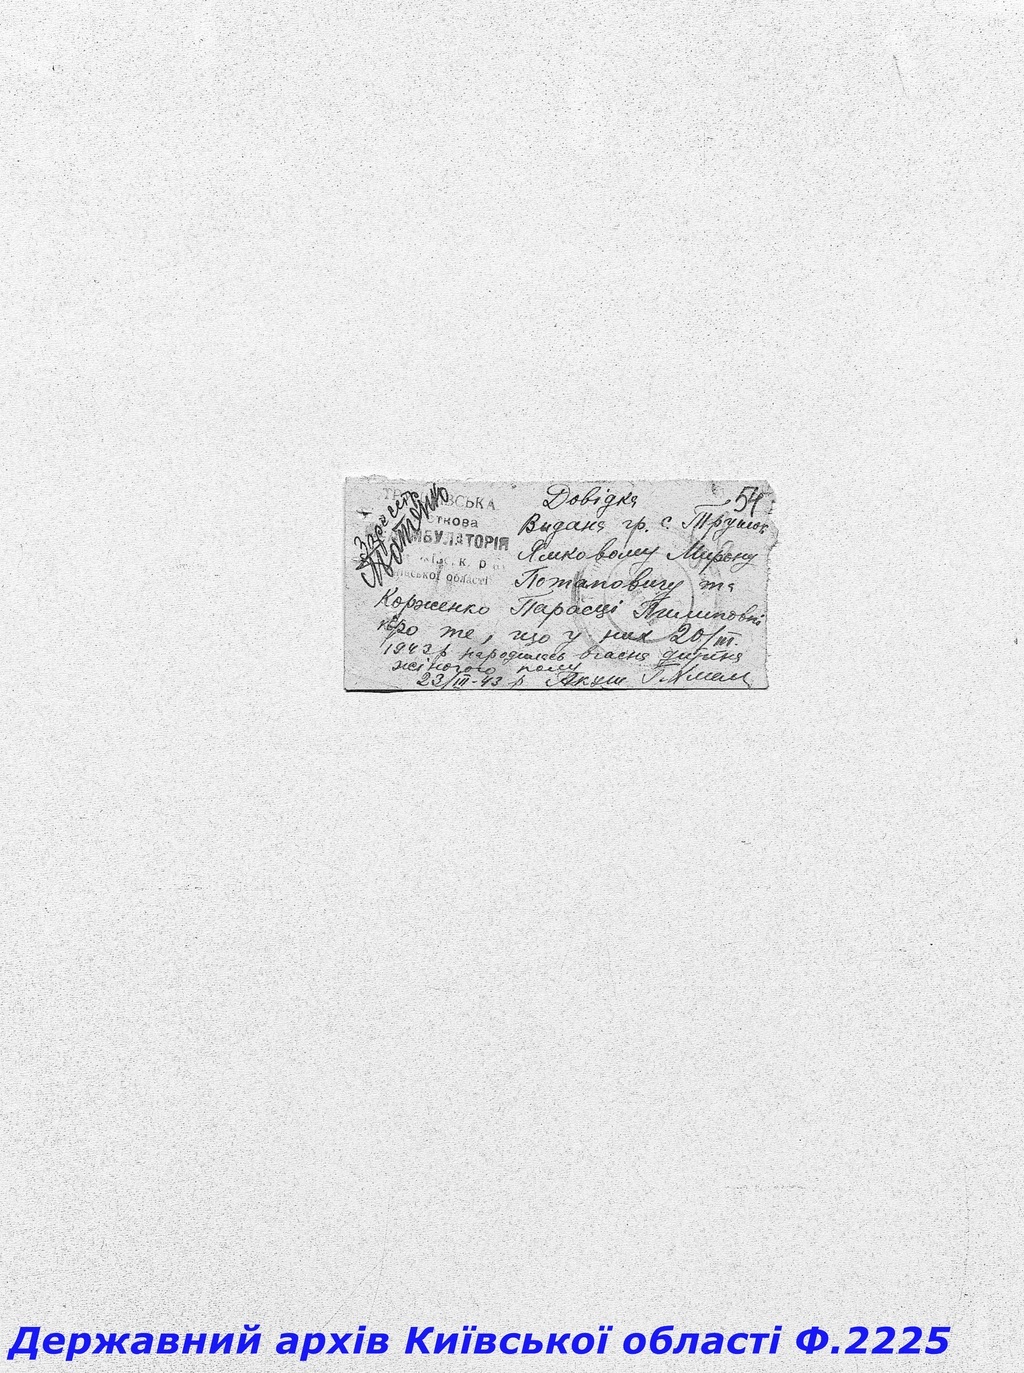 54
Довідка
АМБУЛАТОРІЯ
області
Видана гр. с. Трушок
Ямковому Мирону
Потаповичу та
Корженко Парасці Пилиповні
про те, що у них 20/III.
1943 р народилась дитина
жіночого полу
23/III-43 р Акуш
Державний архів Київської області Ф.2225